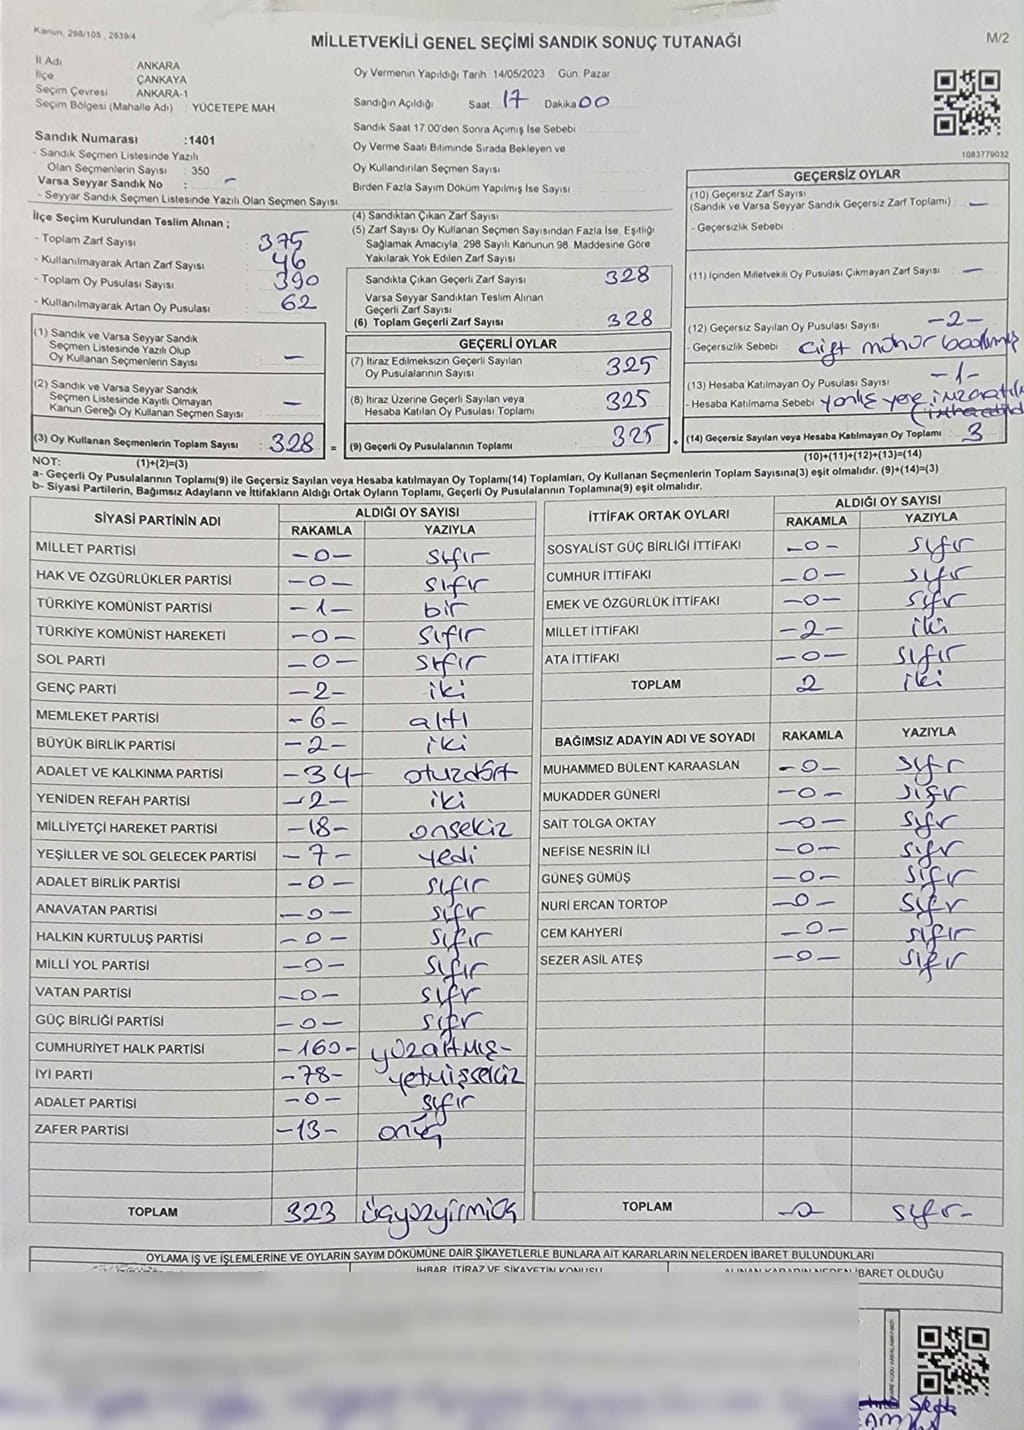 Kanun. 298/105 , 2839/4
MİLLETVEKİLİ GENEL SEÇİMİ SANDIK SONUÇ TUTANAĞI
M/2
İl Adı ANKARA
İlçe ÇANKAYA
Seçim Çevresi ANKARA-1
Seçim Bölgesi (Mahalle Adı) : YÜCETEPE MAH.
Sandık Numarası :1401
- Sandık Seçmen Listesinde Yazılı
Olan Seçmenlerin Sayısı : 350
Varsa Seyyar Sandık No : -
- Seyyar Sandık Seçmen Listesinde Yazılı Olan Seçmen Sayısı
Oy Vermenin Yapıldığı Tarih 14/05/2023 Gün Pazar
Sandığın Açıldığı Saat 17 Dakika 00
Sandık Saat 17.00'den Sonra Açımış İse Sebebi
Oy Verme Saati Bitiminde Sırada Bekleyen ve
Oy Kullandırılan Seçmen Sayısı
Birden Fazla Sayım Döküm Yapılmış İse Sayısı
1083779032
İlçe Seçim Kurulundan Teslim Alınan ;
- Toplam Zarf Sayısı 375
- Kullanılmayarak Artan Zarf Sayısı 46
- Toplam Oy Pusulası Sayısı 390
- Kullanılmayarak Artan Oy Pusulası : 62
(1) Sandık ve Varsa Seyyar Sandık
Seçmen Listesinde Yazılı Olup
Oy Kullanan Seçmenlerin Sayısı : —
(2) Sandık ve Varsa Seyyar Sandık
Seçmen Listesinde Kayıtlı Olmayan
Kanun Gereği Oy Kullanan Seçmen Sayısı : —
(3) Oy Kullanan Seçmenlerin Toplam Sayısı : 328 =
(1)+(2)=(3)
(4) Sandıktan Çıkan Zarf Sayısı
(5) Zarf Sayısı Oy Kullanan Seçmen Sayısından Fazla İse, Eşitliği
Sağlamak Amacıyla, 298 Sayılı Kanunun 98. Maddesine Göre
Yakılarak Yok Edilen Zarf Sayısı
Sandıkta Çıkan Geçerli Zarf Sayısı 328
Varsa Seyyar Sandıktan Teslim Alınan
Geçerli Zarf Sayısı
(6) Toplam Geçerli Zarf Sayısı 328
GEÇERLİ OYLAR
(7) İtiraz Edilmeksizin Geçerli Sayılan
Oy Pusulalarının Sayısı 325
(8) İtiraz Üzerine Geçerli Sayılan veya
Hesaba Katılan Oy Pusulası Toplamı 325
(9) Geçerli Oy Pusulalarının Toplamı 325 +
GEÇERSİZ OYLAR
(10) Geçersiz Zarf Sayısı
(Sandık ve Varsa Seyyar Sandık Geçersiz Zarf Toplamı) —
- Geçersizlik Sebebi
(11) İçinden Milletvekili Oy Pusulası Çıkmayan Zarf Sayısı —
(12) Geçersiz Sayılan Oy Pusulası Sayısı -2-
- Geçersizlik Sebebi : çift mühür
(13) Hesaba Katılmayan Oy Pusulası Sayısı -1-
- Hesaba Katılmama Sebebi yanlış yere
(14) Geçersiz Sayılan veya Hesaba Katılmayan Oy Toplamı 3
(10)+(11)+(12)+(13)=(14)
NOT:
a- Geçerli Oy Pusulalarının Toplamı(9) ile Geçersiz Sayılan veya Hesaba katılmayan Oy Toplamı(14) Toplamları, Oy Kullanan Seçmenlerin Toplam Sayısına(3) eşit olmalıdır. (9)+(14)=(3)
b- Siyasi Partilerin, Bağımsız Adayların ve İttifakların Aldığı Ortak Oyların Toplamı, Geçerli Oy Pusulalarının Toplamına(9) eşit olmalıdır.
SİYASİ PARTİNİN ADI ALDIĞI OY SAYISI
RAKAMLA YAZIYLA
MİLLET PARTİSİ -0- sıfır
HAK VE ÖZGÜRLÜKLER PARTİSİ -0- sıfır
TÜRKİYE KOMÜNİST PARTİSİ -1- bir
TÜRKİYE KOMÜNİST HAREKETİ -0- sıfır
SOL PARTİ -0- sıfır
GENÇ PARTİ -2- iki
MEMLEKET PARTİSİ -6- altı
BÜYÜK BİRLİK PARTİSİ -2- iki
ADALET VE KALKINMA PARTİSİ -34- otuzdört
YENİDEN REFAH PARTİSİ -2- iki
MİLLİYETÇİ HAREKET PARTİSİ -18- onsekiz
YEŞİLLER VE SOL GELECEK PARTİSİ -7- yedi
ADALET BİRLİK PARTİSİ -0- sıfır
ANAVATAN PARTİSİ -0- sıfır
HALKIN KURTULUŞ PARTİSİ -0- sıfır
MİLLİ YOL PARTİSİ -0- sıfır
VATAN PARTİSİ -0- sıfr
GÜÇ BİRLİĞİ PARTİSİ -0- sıfr
CUMHURİYET HALK PARTİSİ -160- yüzaltmış-
İYİ PARTİ -78- yetmişsekiz
ADALET PARTİSİ -0- sıfır
ZAFER PARTİSİ -13- onüç
TOPLAM 323 üçyüzyirmiüç
İTTİFAK ORTAK OYLARI ALDIĞI OY SAYISI
RAKAMLA YAZIYLA
SOSYALİST GÜÇ BİRLİĞİ İTTİFAKI -0- sıfır
CUMHUR İTTİFAKI -0- sıfır
EMEK VE ÖZGÜRLÜK İTTİFAKI -0- sıfr
MİLLET İTTİFAKI -2- iki
ATA İTTİFAKI -0- sıfır
TOPLAM 2 iki
BAĞIMSIZ ADAYIN ADI VE SOYADI RAKAMLA YAZIYLA
MUHAMMED BÜLENT KARAASLAN -0- sıfr
MUKADDER GÜNERİ -0- sıfır
SAİT TOLGA OKTAY -0- sıfr
NEFİSE NESRİN İLİ -0- sıfr
GÜNEŞ GÜMÜŞ -0- sıfır
NURİ ERCAN TORTOP -0- sıfr
CEM KAHYERİ -0- sıfır
SEZER ASİL ATEŞ -0- sıfır
TOPLAM -0- sıfr-
OYLAMA İŞ VE İŞLEMLERİNE VE OYLARIN SAYIM DÖKÜMÜNE DAİR ŞİKAYETLERLE BUNLARA AİT KARARLARIN NELERDEN İBARET BULUNDUKLARI
İHBAR, İTİRAZ VE ŞİKAYETİN KONUSU
ALINAN KARARIN NEDEN İBARET OLDUĞU